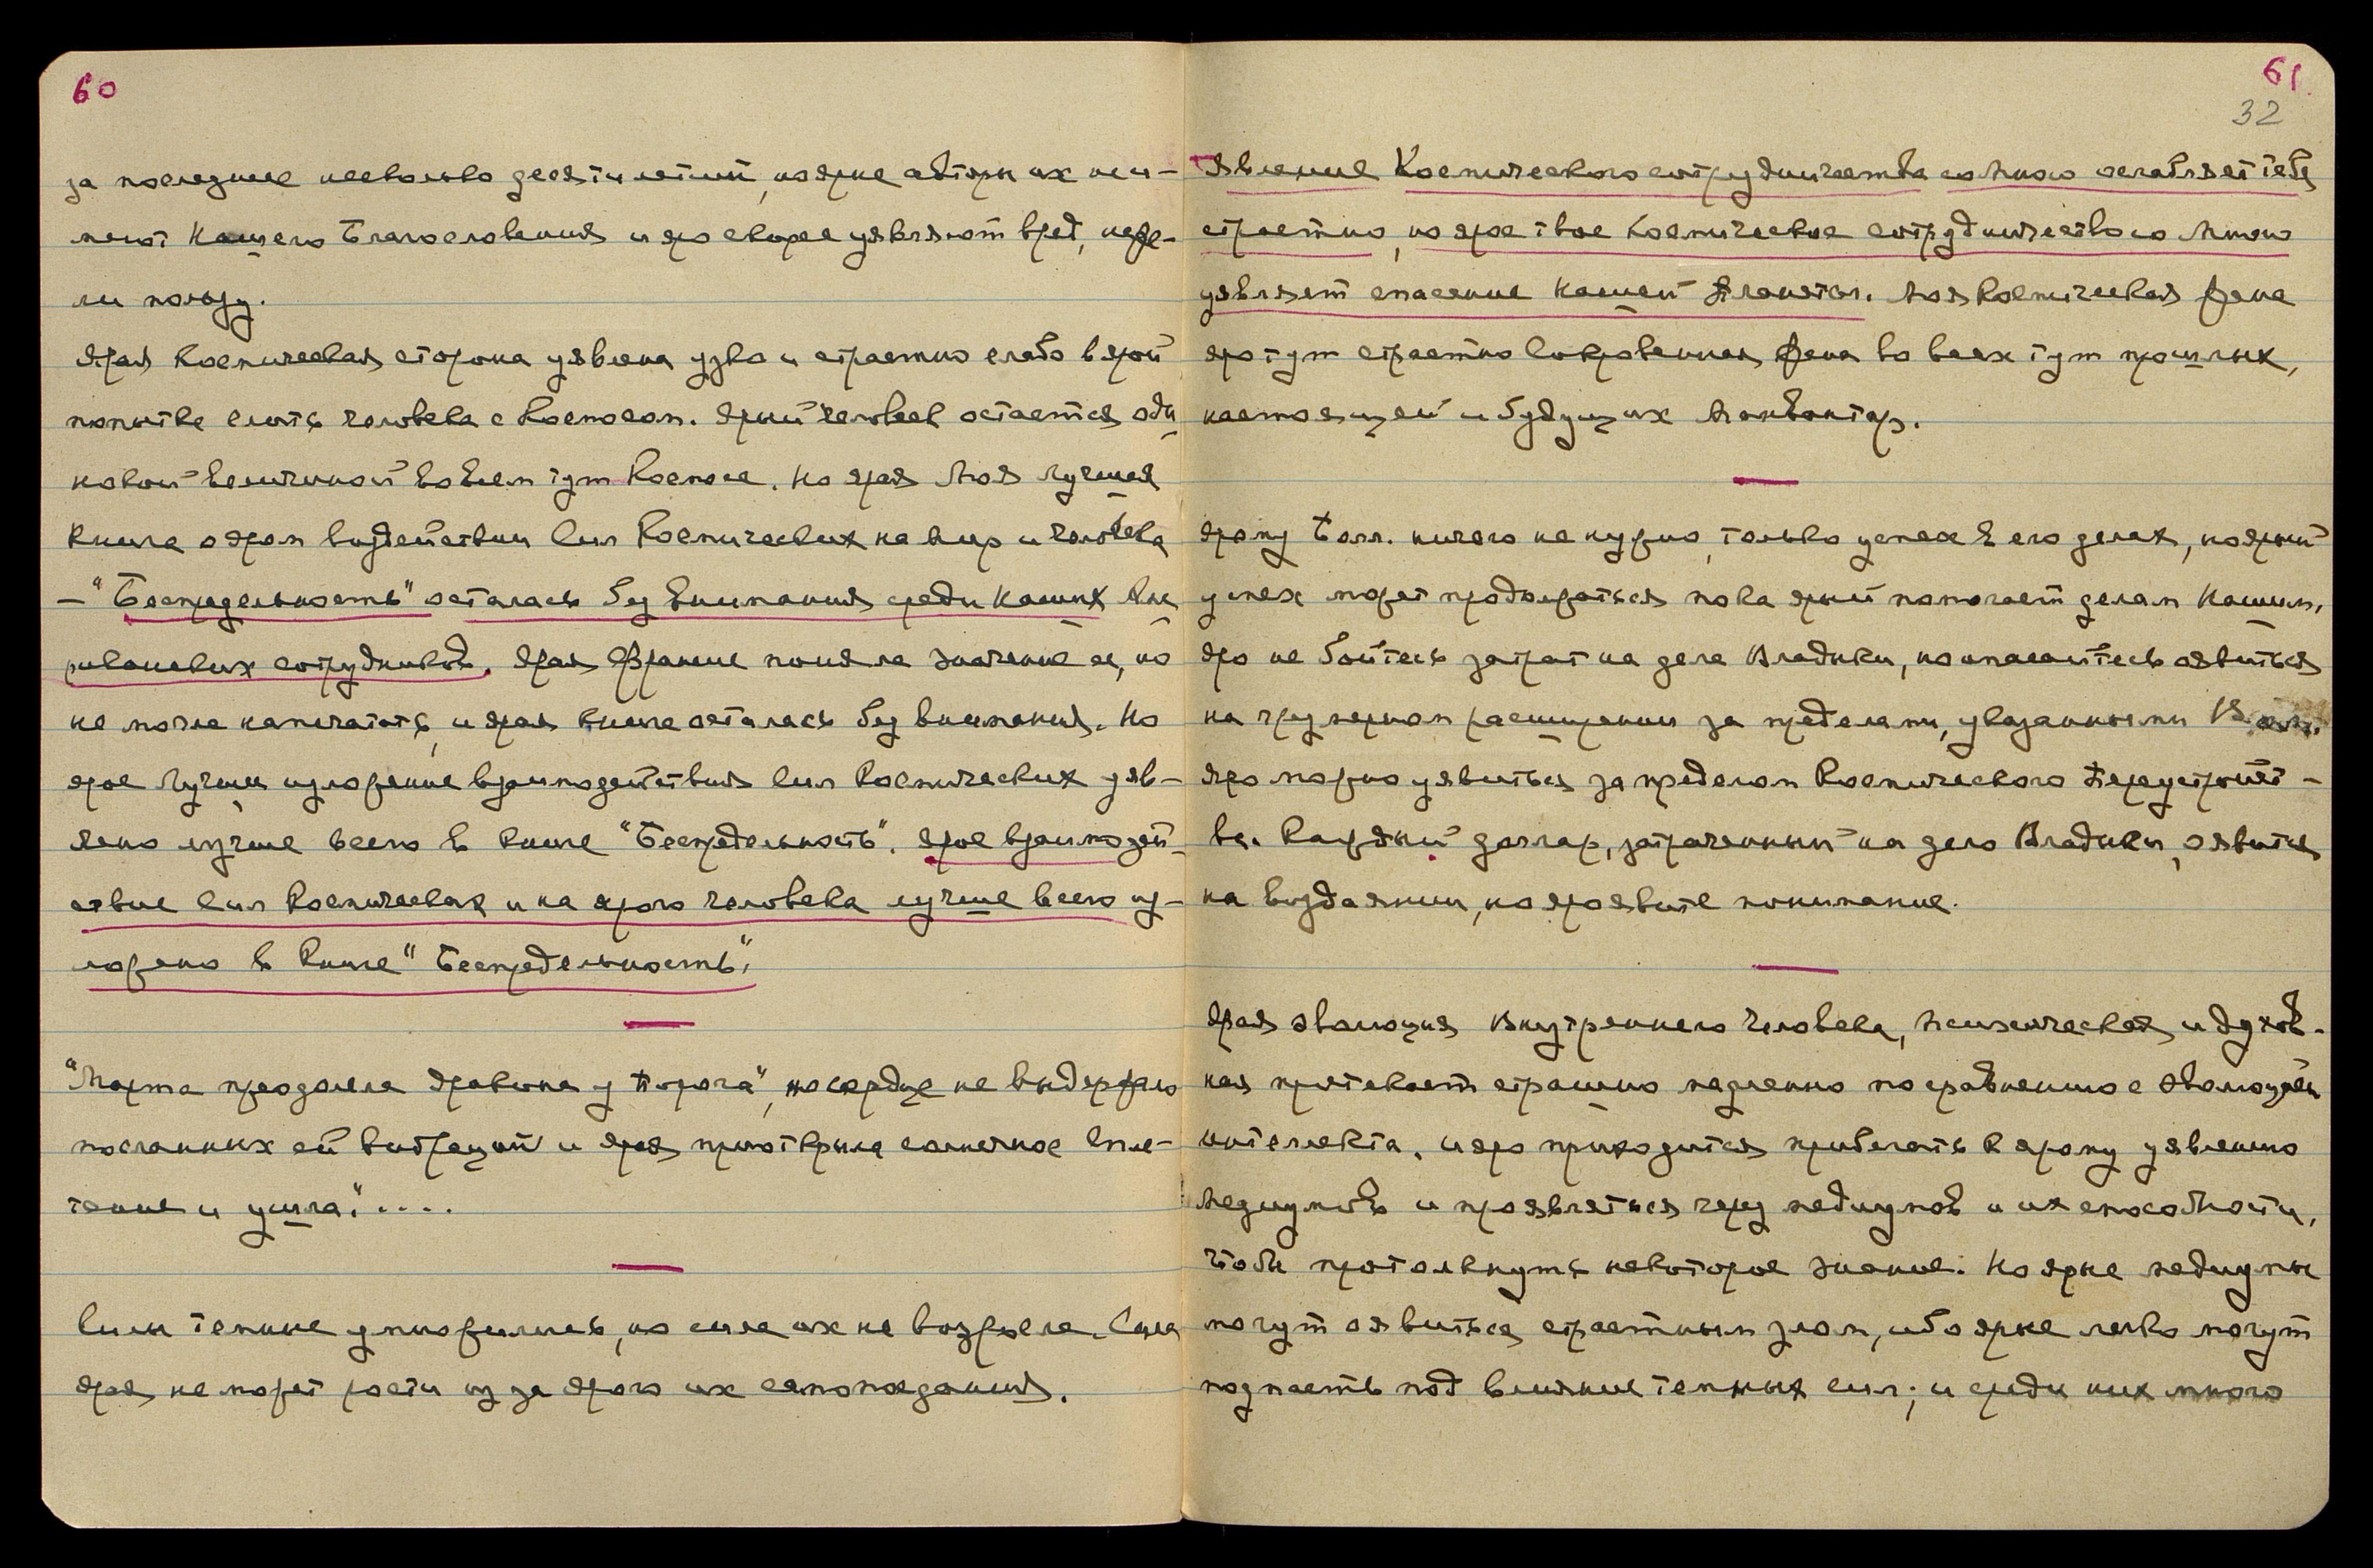 60
за последние несколько десятилетий, но ярые авторы их не и-
меют Нашего Благословения и яро скорее уявляют вред, неже-
ли пользу.
Ярая космическая сторона уявлена узко и страстно слабо в ярой
попытке слить человека с Космосом. Ярый человек остается оди
нокой величиной во всем тут Космосе. Но ярая Моя лучшая
книга о яром воздействии Сил Космических на мир и человека
— "Беспредельность" осталась без внимания среди наших Аме
риканских сотрудников. Ярая Франсис поняла значение ее, но
не могла напечатать, и ярая книга осталась без внимания. Но
ярое лучшее изложение взаимодействия Сил Космических уяв-
лено лучше всего в книге "Беспредельность". Ярое взаимодей-
ствие Сил Космических и на ярого человека лучше всего из-
ложено в книге "Беспредельность".
"Марта преодолела Дракона у Порога", но сердце не выдержало
посланных ей вибраций и ярая приоткрыла солнечное спле-
тение и ушла."....
Силы темные умножились, но сила их не возросла. Сила
ярая не может расти из за ярого их самопоедания.
61
32
Явление Космического сотрудничества со Мною ослабляет тебя
страстно, но ярое твое Космическое сотрудничество со Мною
уявляет спасение нашей Планеты. Моя Космическая Жена
яро тут страстно Сокровенная Жена во всех тут прошлых,
настоящей и будущих Манвантар.
Ярому Болл. ничего не нужно, только успех в его делах, но ярый
успех может продолжаться пока ярый помогает делам Нашим.
Яро не бойтесь затрат на дела Владыки, но опасайтесь оявиться
на чрезмерном расширении за пределами, указанными
Яро можно уявиться за пределом Космического Переустройст-
ва. Каждый доллар, затраченный на дело Владыки, оявится
на воздаянии, но яро явите понимание.
Ярая эволюция Внутреннего Человека, психическая и духов-
ная протекает страшно медленно по сравнению с эволюцией
интеллекта, и яро приходится прибегать к ярому уявлению
медиумов и проявляться через медиумов и их способности,
чтобы протолкнуть некоторое знание. Но ярые медиумы
могут оявиться страстным злом, ибо ярые легко могут
подпасть под влияние темных сил; и среди них много